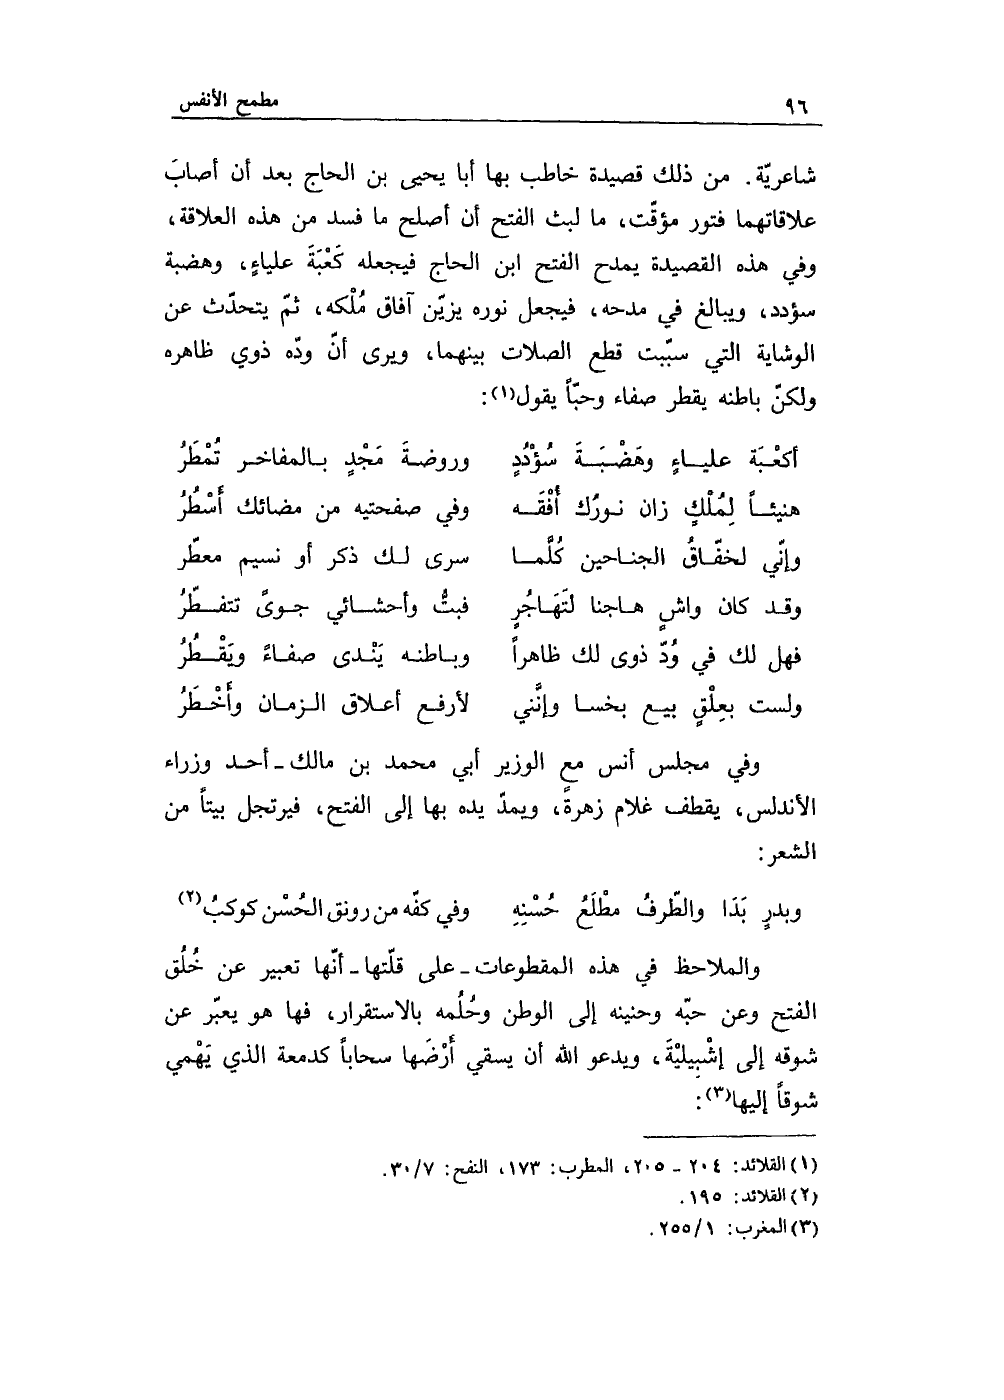 ٩٦ مطمح الأنفس
شاعريّة. من ذلك قصيدة خاطب بها أبا يحيى بن الحاج بعد أن أصابَ
علاقاتهما فتور مؤقّت، ما لبث الفتح أن أصلح ما فسد من هذه العلاقة،
وفي هذه القصيدة يمدح الفتح ابن الحاج فيجعله كَعْبَةَ علياءٍ، وهضبة
سؤدد، ويبالغ في مدحه، فيجعل نوره يزيّن آفاق مُلْكه، ثمّ يتحدّث عن
الوشاية التي سبّبت قطع الصلات بينهما، ويرى أنّ ودّه ذوي ظاهره
ولكنّ باطنه يقطر صفاء وحبّاً يقول(١):
أكعْبَة عليـاءٍ وهَضْبَـةَ سُؤْدُدٍ وروضةَ مَجْدٍ بـالمفاخـر تُمْطَرُ
هنيئـاً لِمُلْكٍ زان نـورُك أُفْقَـه وفي صفحتيه من مضائك أَسْطُرُ
وإنّي لخفّـاقُ الجنـاحين كُلَّمـا سرى لـك ذكر أو نسيم معطّر
وقـد كان واشٍ هـاجنا لتَهَـاجُرٍ فبتُّ وأحشـائي جـوىً تتفـطّرُ
فهل لك في وُدّ ذوى لك ظاهراً وبـاطنـه يَنْـدى صفـاءً ويَقْـطُرُ
ولست بعِلْقٍ بيـع بخسـا وإنَّني لأرفـع أعـلاق الـزمـان وأَخْـطَرُ
وفي مجلس أنس مع الوزير أبي محمد بن مالك ـ أحـد وزراء
الأندلس، يقطف غلام زهرةً، ويمدّ يده بها إلى الفتح، فيرتجل بيتاً من
الشعر:
وبدرٍ بَدَا والطّرفُ مطْلَعُ حُسْنِهِ وفي كفّه من رونق الحُسْن كوكبُ(٢)
والملاحظ في هذه المقطوعات ـ على قلّتها ـ أنّها تعبير عن خُلُق
الفتح وعن حبّه وحنينه إلى الوطن وحُلُمه بالاستقرار، فها هو يعبّر عن
شوقه إلى إشْبِيليْةَ، ويدعو الله أن يسقي أَرْضَها سحاباً كدمعة الذي يَهْمي
شوقاً إليها(٣):
(١) القلائد: ٢٠٤ ـ ٢٠٥، المطرب: ١٧٣، النفح: ٣٠/٧.
(٢) القلائد: ١٩٥.
(٣) المغرب: ٢٥٥/١.